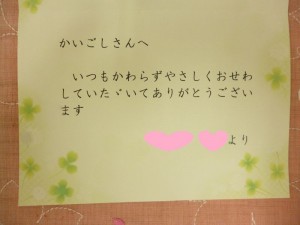 かいごしさんへ
いつもかわらずやさしくおせわ
していたゞいてありがとうござい
ます
より